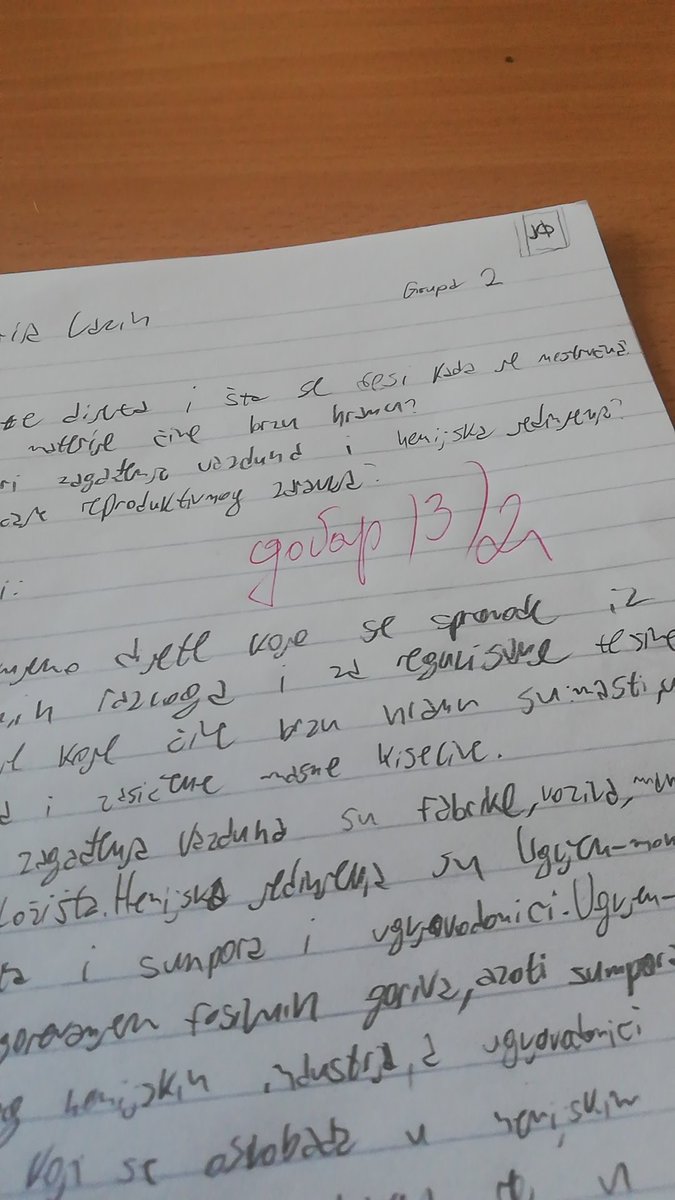 ЈФ
Grupa 2
Lazih
dijeta i šta se desi kada se
materije čine brzu hranu?
zagađenja vazduha i hemijska jedinjenja?
reproduktivnog zdravlja?
добар (3)/2
i:
dijete koje se sprovode iz
razloga i za regulisanje
koje čine brzu hranu su: masti,
i zasićene masne kiseline.
zagađenja vazduha su fabrike, vozila,
ložišta. Hemijska jedinjenja su Ugljen-mon
i sumpora i ugljovodonici. Ugljen-
fosilnih goriva, azot i sumpora
hemijskih industrija, a ugljovodonici
koji se oslobađa u hemijskim
u